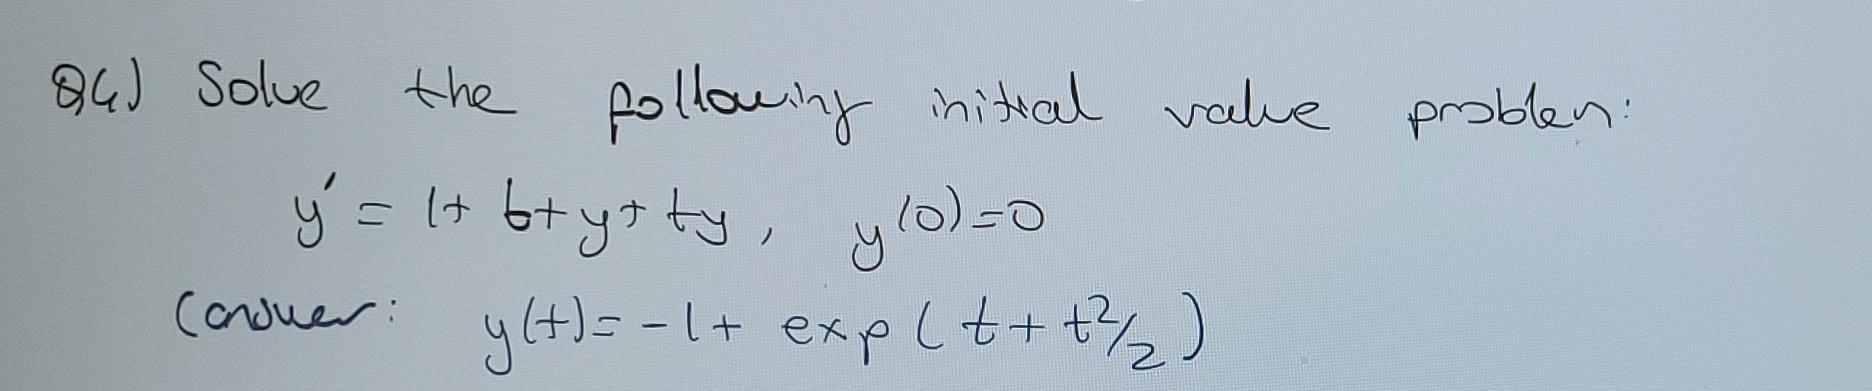 Q4) Solve the following initial value problem:
y' = 1+ t+y+ ty, y(0)=0
(answer: y(t)= -1+ exp(t+t²/2)